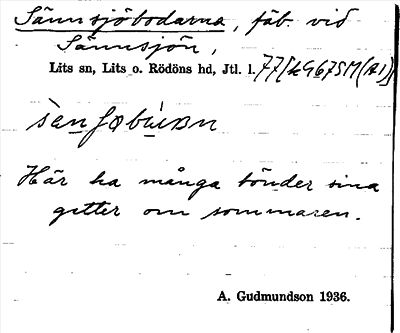 Sännsjöbodarna, fäb. vid
Sännsjön,
Lits sn, Lits o. Rödöns hd, Jtl. l.
Här ha många bönder sina
getter om sommaren.
A. Gudmundson 1936.